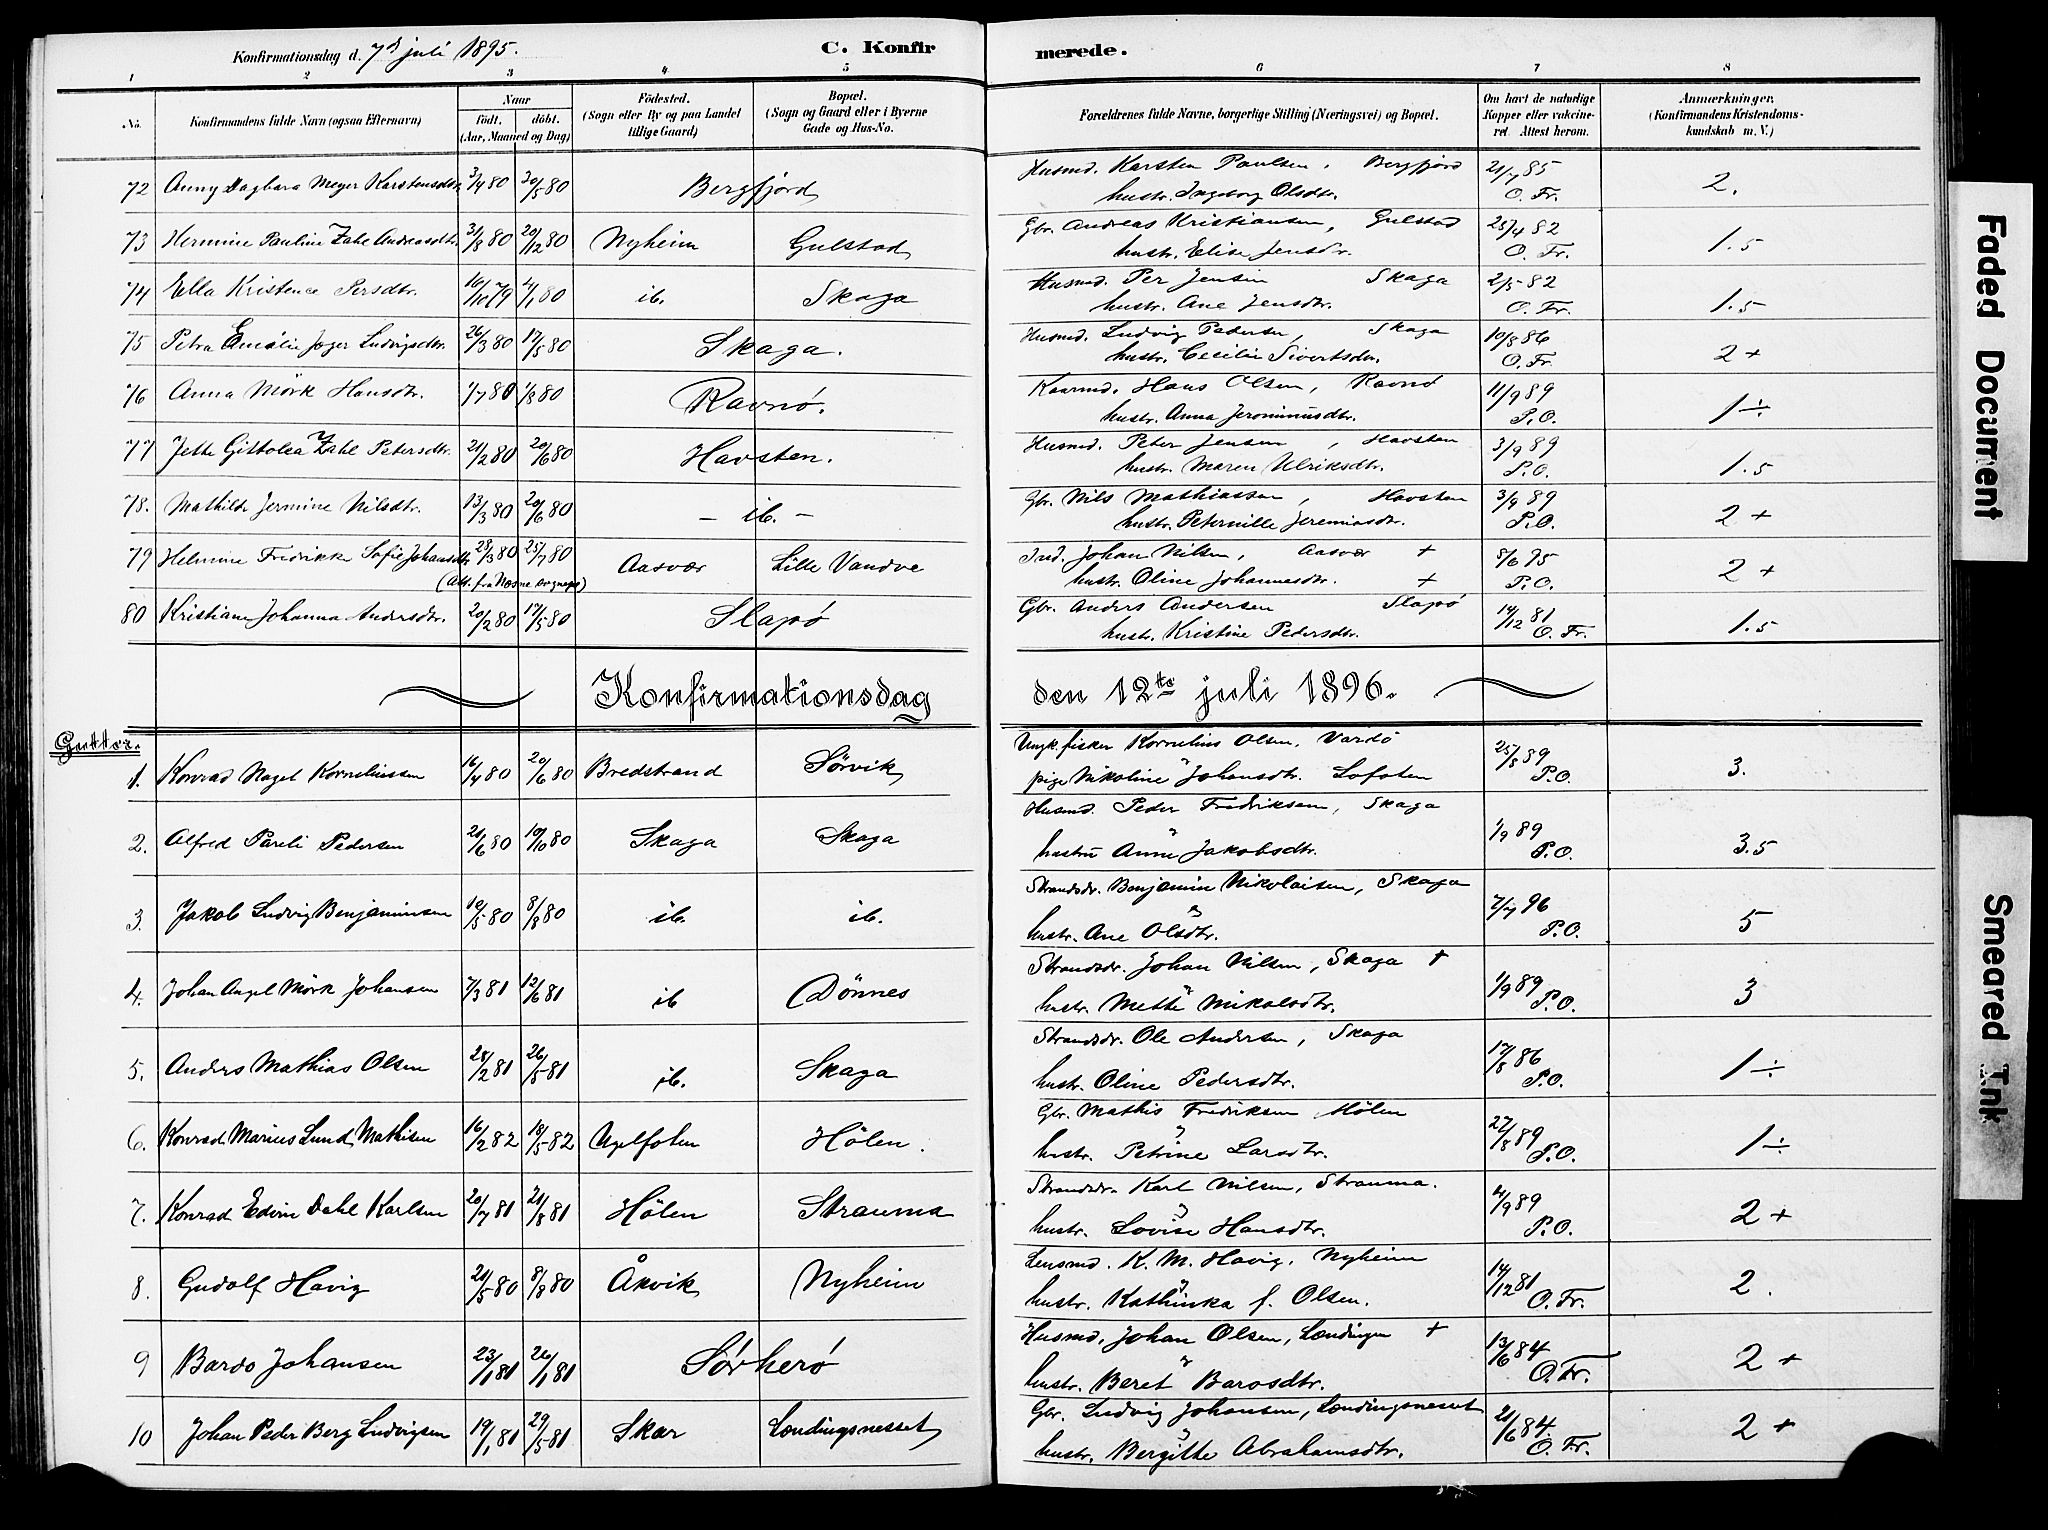 Konfirmationsdag d. 7d juli 1895. C. Konfirmerede.
1 2 3 4 5 6 7 8
No. Konfirmandens fulde Navn (ogsaa Efternavn) Naar födt. döbt. (Aar, Maaned og Dag) Födested. (Sogn eller By og paa Landet tillige Gaard) Bopæl. (Sogn og Gaard eller i Byerne Gade og Hus-No. Forældrenes fulde Navne, borgerlige Stilling (Næringsvei) og Bopæl. Om havt de naturlige Kopper eller vakcineret. Attest herom. Anmærkninger. (Konfirmandens Kristendomskundskab m. V.)
72 Anny Dagbara Meyer Karstensdtr. 3/4 80 30/5 80 Bergfjord Husmd. Karsten Paulsen, Bergfjord 21/7 85 2.
hustr. Ingeborg Olsdtr. O. Fr.
73 Hermine Pauline Zahl Andreasdtr. 31/8 80 20/12 80 Nyheim Gulstad Gbr. Andreas Kristiansen, Gulstad 25/4 82 1.5
hustr. Elise Jensdr. O. Fr.
74 Ella Kristence Persdtr. 16/10 79 4/1 80 ib. Skaga Husmd. Per Jensen Skaga 2/5 82 1.5
hustr. Ane Jensdtr. O. Fr.
75 Petra Emilie Jager Ludvigsdtr. 26/3 80 17/5 80 Skaga. Husmd. Ludvig Pedersen, Skaga 10/8 86 2 +
hustr. Cecilie Sivertsdtr. O. Fr.
76 Anna Mörk Hansdtr. 1/7 80 1/8 80 Ravnö. Kaarmd. Hans Olsen, Ravnö 11/9 89 1 ÷
hustr. Anna Jeronimusdtr. P.O.
77 Jette Gittolea Zahl Petersdtr. 21/2 80 20/6 80 Havsten. Husmd. Peter Jensen, Havsten 3/9 89 1.5
hustr. Maren Ulriksdtr. P.O.
78. Mathilde Jermine Nilsdtr. 13/3 80 20/6 80 – ib. – Gbr. Nils Mathiassen, Havsten 3/9 89 2 +
hustr. Peternille Jeremiasdtr. P.O.
79 Helmine Fredrikke Sofie Johansdtr 23/3 80 25/7 80 Aasvær Lille Vandve Ind. Johan Nilsen, Aasvær + 8/6 95 2 +
(Att. fra Næsne sognepr.) hustr. Oline Johannesdtr. + P.O.
80 Kristiane Johanna Andersdtr. 20/2 80 17/5 80 Slapö Gbr. Anders Andersen Slapö 14/12 81 1.5
hustr. Kristine Pedersdtr. O. Fr.
Konfirmationsdag den 12te juli 1896.
Gutter.
Ungk. fisker Kornelius Olsen, Vardö
1. Konrad Naget Korneliussen 16/4 80 20/6 80 Bredstrand Sörvik pige Nikoline Johansdtr. Lofoten 25/8 89 P.O. 3.
Husmd. Peder Fredriksen, Skaga
2. Alfred Pareli Pedersen 21/6 80 10/10 80 Skaga Skaga hustru Anne Jakobsdtr. 1/9 89 P.O. 3.5
Strandsdr. Benjamin Nikolaisen, Skaga
3. Jakob Ludvig Benjaminsen 10/5 80 8/8 80 ib. ib. hustr. Ane Olsdtr. 7/7 96 P.O. 5
Strandsdr. Johan Nilsen, Skaga +
4. Johan Angel Mörk Johansen 7/3 81 12/6 81 ib Dönnes hustr. Mette Nikolsdtr. 1/9 89 P.O. 3
Strandsdr. Ole Andersen, Skaga
5. Anders Mathias Olsen 28/2 81 26/5 81 ib. Skaga hustr. Oline Pedersdtr. 17/8 86 P.O. 1 ÷
Gbr. Mathis Fredriksen Hölen
6. Konrad Marius Lund Mathisen 16/2 82 18/5 82 Ugelfoten Hölen. hustr. Petrine Larsdtr. 27/8 89 P.O. 1 ÷
Strandsdr. Karl Nilsen, Strauma.
7. Konrad Edvin Dahl Karlsen 20/7 81 21/8 81 Hölen Strauma hustr. Lovise Hansdtr. 4/9 89 P.O. 2 +
Lensmd. K. M. Havig, Nyheim
8. Gudolf Havig 21/5 80 8/8 80 Åkvik Nyheim hustr. Kathinka f. Olsen. 14/12 81 O. Fr. 2.
Husmd. Johan Olsen, Lændingen +
9 Bardo Johansen 23/1 81 26/1 81 Sörherö hustr. Beret Barosdtr. 13/6 84 O. Fr. 2 +
Gbr. Ludvig Johansen, Lændingsnesset
10 Johan Peder Berg Ludvigsen 19/1 81 29/5 81 Skar Lændingsnesset hustr. Bergitte Abrahamsdtr. 21/6 84. O. Fr. 2 +
Faded Document
Smeared Ink